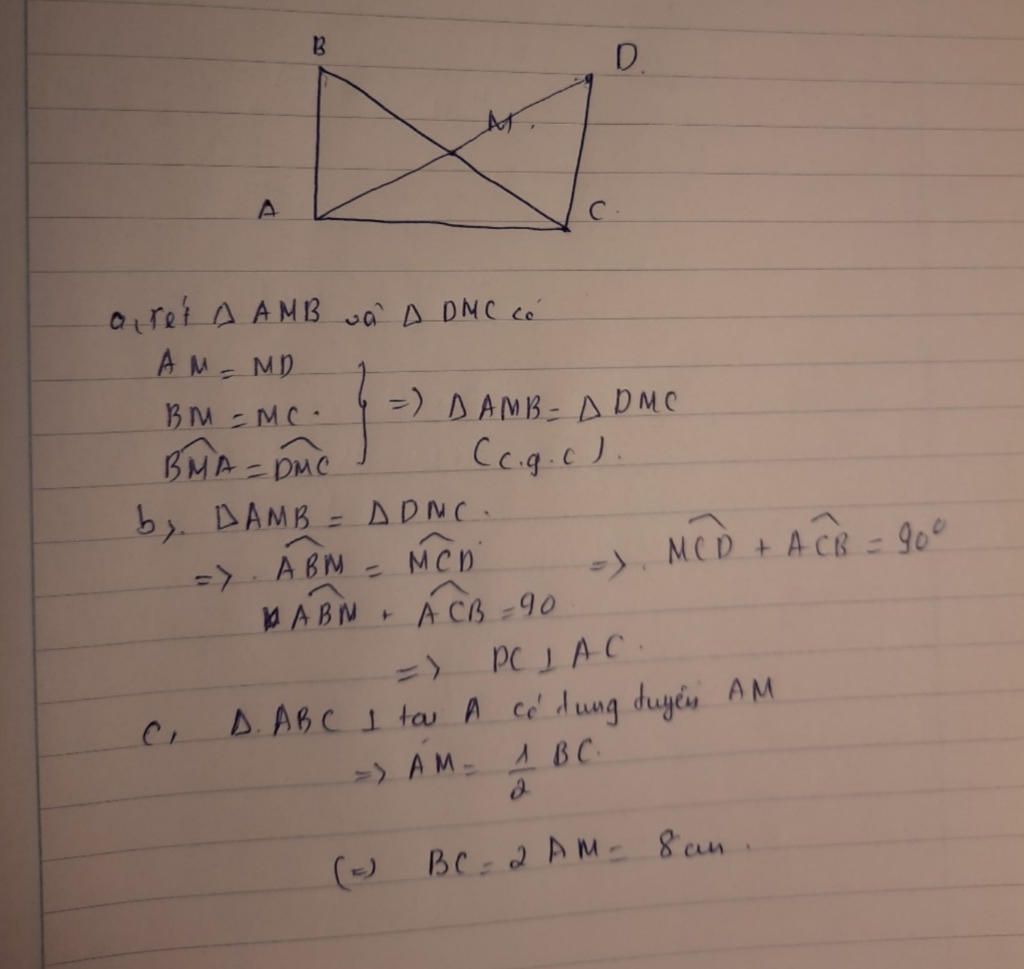 B
D.
M.
A
C.
a, Xét Δ AMB và Δ DMC có
AM = MD
BM = MC.
=> Δ AMB = Δ DMC
BMA = DMC
(c.g.c).
b,. ΔAMB = ΔDMC.
=> . ABM = MCD
=> . MCD + ACB = 90°
ABM + ACB = 90
=> DC ⊥ AC.
c, Δ. ABC ⊥ tại A có trung tuyến AM
=> AM = 1/2 BC.
(=) BC = 2 AM = 8 cm.